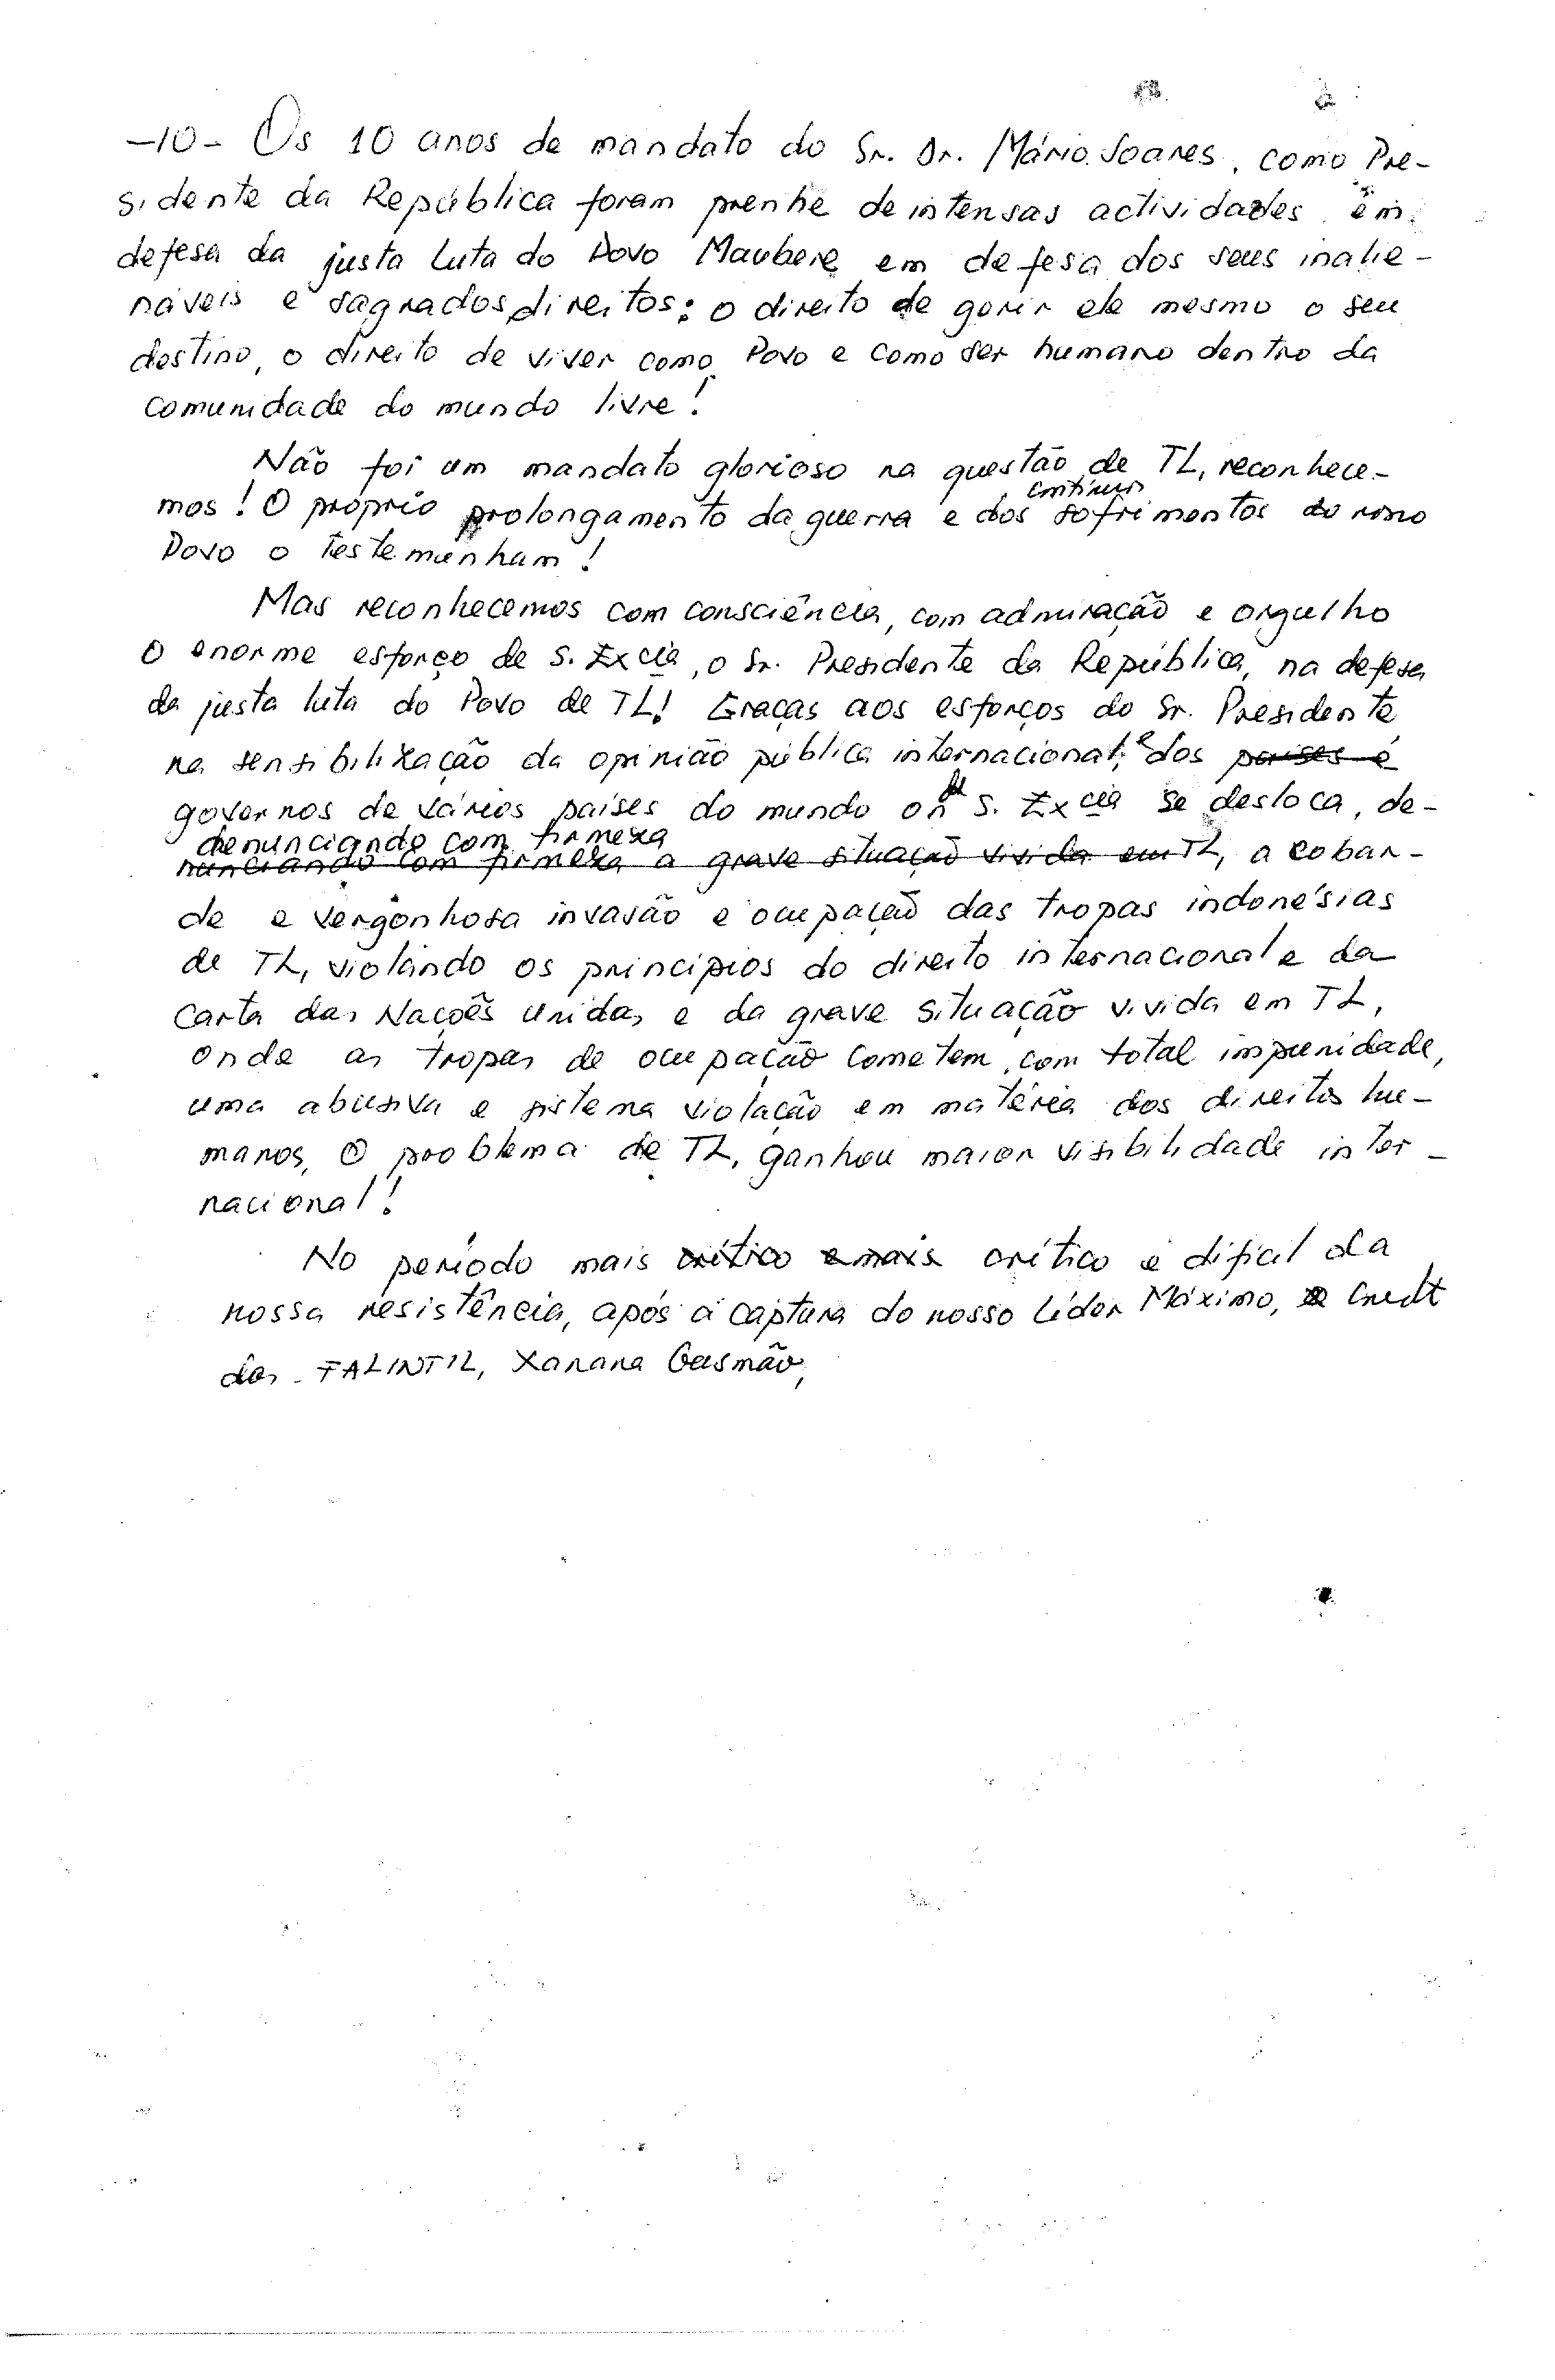 -10- Os 10 anos de mandato do Sr. Dr. Mário Soares, como Pre-
sidente da República foram prenhe de intensas actividades em
defesa da justa luta do Povo Maubere em defesa dos seus inalie-
náveis e sagrados direitos: o direito de gerir ele mesmo o seu
destino, o direito de viver como Povo e como ser humano dentro da
comunidade do mundo livre!
Não foi um mandato glorioso na questão de TL, reconhece-
contínuos
mos! O próprio prolongamento da guerra e dos sofrimentos do nosso
Povo o testemunham!
Mas reconhecemos com consciência, com admiração e orgulho
o enorme esforço de S. Excia, o Sr. Presidente da República, na defesa
da justa luta do Povo de TL! Graças aos esforços do Sr. Presidente
na sensibilização da opinião pública internacional, e dos países e
governos de vários países do mundo onde S. Excia se desloca, de-
denunciando com firmeza
nunciando com firmeza a grave situação vivida em TL, a cobar-
de e vergonhosa invasão e ocupação das tropas indonésias
de TL, violando os princípios do direito internacional e da
Carta das Nações Unidas e da grave situação vivida em TL,
onde as tropas de ocupação cometem, com total impunidade,
uma abusiva e sistema violação em matéria dos direitos hu-
manos, O problema de TL, ganhou maior visibilidade inter-
nacional!
No período mais crítico e mais crítico e difícil da
nossa resistência, após a captura do nosso Líder Máximo, e Cmdt
das FALINTIL, Xanana Gusmão,